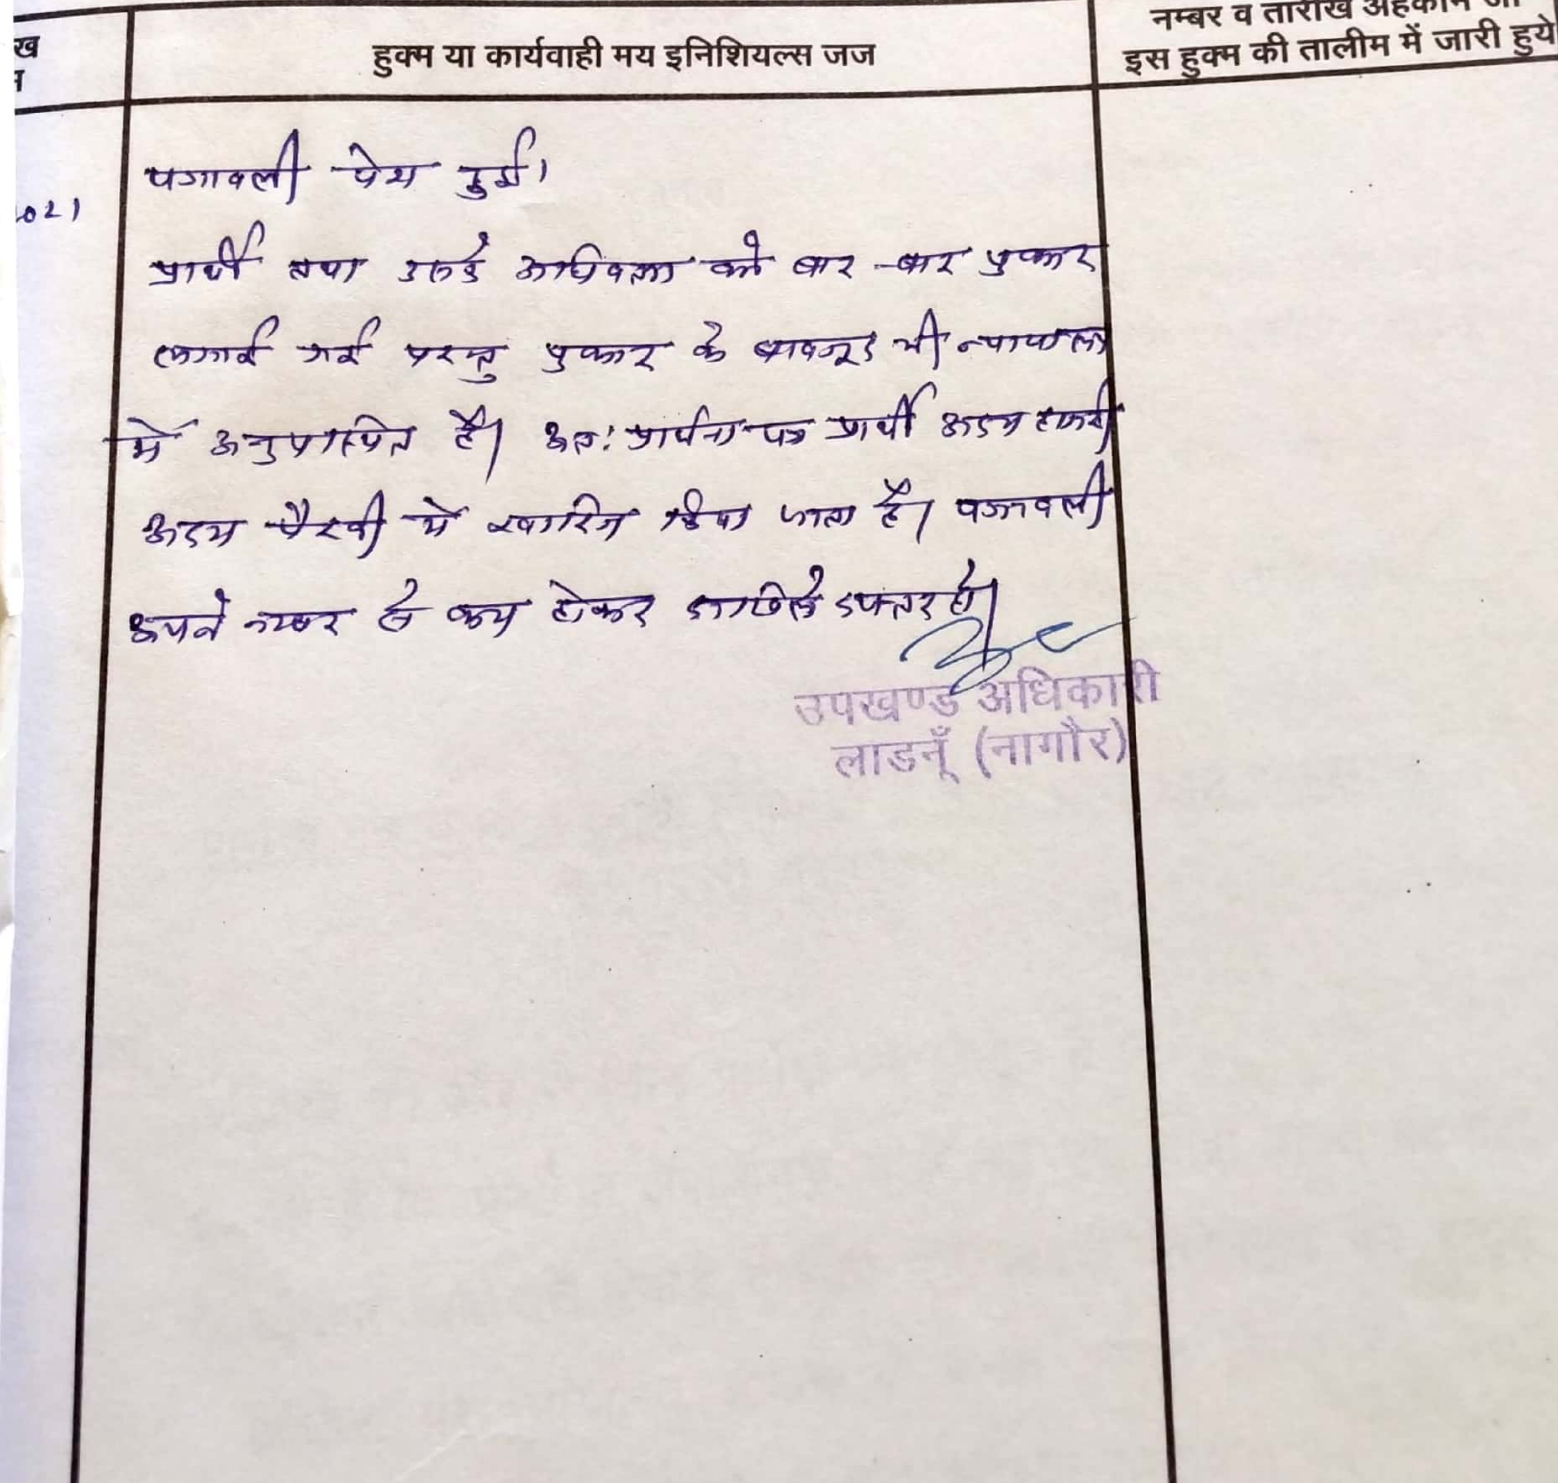 ख
हुक्म या कार्यवाही मय इनिशियल्स जज
नम्बर व तारीख अहकाम
इस हुक्म की तालीम में जारी हुये
पत्रावली पेश हुई।
प्रार्थी तथा उनके अधिवक्ता को बार-बार पुकार
लगाई गई परन्तु पुकार के बावजूद भी न्यायालय
में अनुपस्थित है। अतः प्रार्थना पत्र प्रार्थी अदम हाजरी
अदम पैरवी में खारिज किया जाता है। पत्रावली
अपने नम्बर से कम होकर दाखिले दफ्तर हो।
उपखण्ड अधिकारी
लाडनूँ (नागौर)